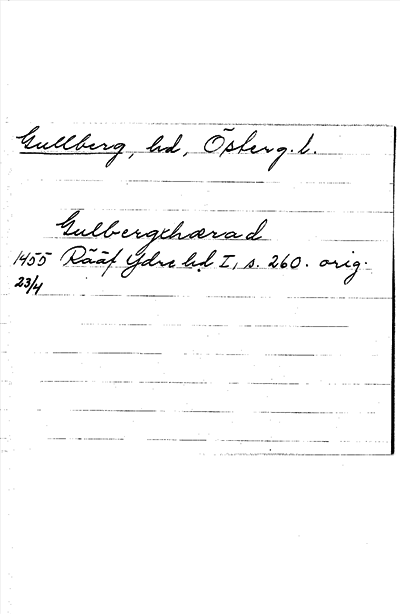 Gullberg, hd, Österg.l.
Gulbergxhærad
1455 Rääf Ydre hd I, s. 260. orig.
23/4